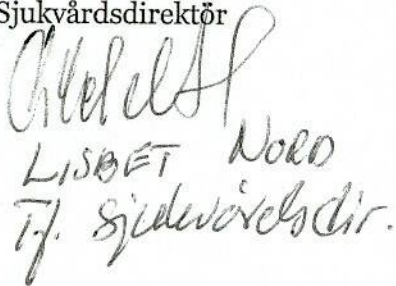 Sjukvårdsdirektör
LISBET NORD
Tf. Sjukvårdsdir.